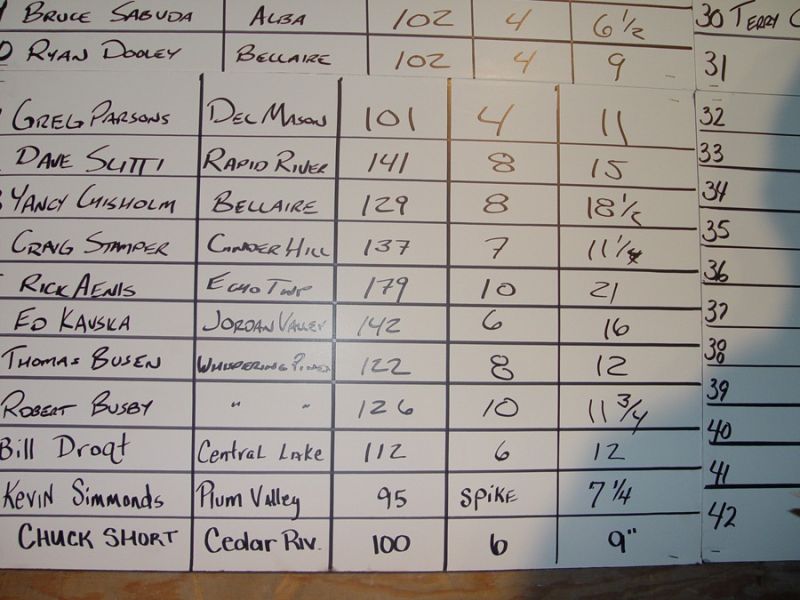 Bruce Sabuda Alba 102 4 6 1/2 30 Terry
Ryan Dooley Bellaire 102 4 9 31
Greg Parsons Del Mason 101 4 11 32
Dave Slitti Rapid River 141 8 15 33
Yancy Chisholm Bellaire 129 8 18 1/2 34
Craig Stamper Cinder Hill 137 7 11 1/4 35
Rick Aenis Echo Twp 179 10 21 36
Ed Kavska Jordan Valley 142 6 16 37
Thomas Busen Whispering Pines 122 8 12 38
Robert Busby " " 126 10 11 3/4 39
Bill Droqt Central Lake 112 6 12 40
Kevin Simmonds Plum Valley 95 Spike 7 1/4 41
CHUCK SHORT Cedar Riv. 100 6 9" 42